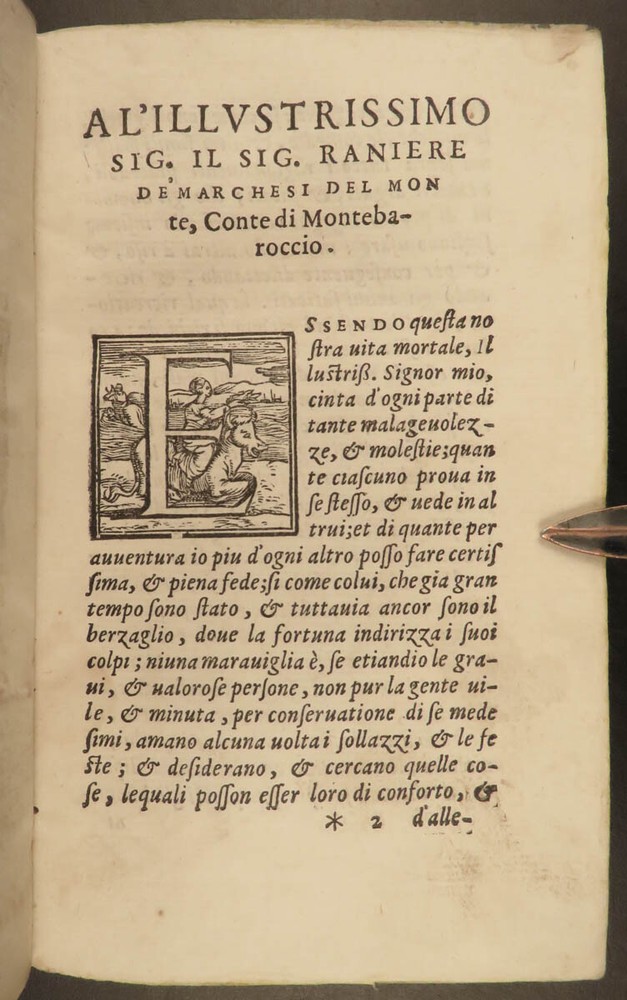 AL'ILLVSTRISSIMO
SIG. IL SIG. RANIERE
DE'MARCHESI DEL MON
te, Conte di Monteba-
roccio.
E
SSENDO queſta no
ſtra uita mortale, Il
luſtriß. Signor mio,
cinta d'ogni parte di
tante malageuolez-
ze, & moleſtie; quan
te ciaſcuno proua in
ſe ſteſſo, & uede in al
trui; et di quante per
auuentura io piu d'ogni altro poſſo fare certiſ
ſima, & piena fede; ſi come colui, che gia gran
tempo ſono ſtato, & tuttauia ancor ſono il
berzaglio, doue la fortuna indirizza i ſuoi
colpi; niuna marauiglia è, ſe etiandio le gra-
ui, & ualoroſe perſone, non pur la gente ui-
le, & minuta, per conſeruatione di ſe mede
ſimi, amano alcuna uolta i ſollazzi, & le fe
ſte; & deſiderano, & cercano quelle co-
ſe, lequali poſſon eſſer loro di conforto, &
* 2 d'alle-